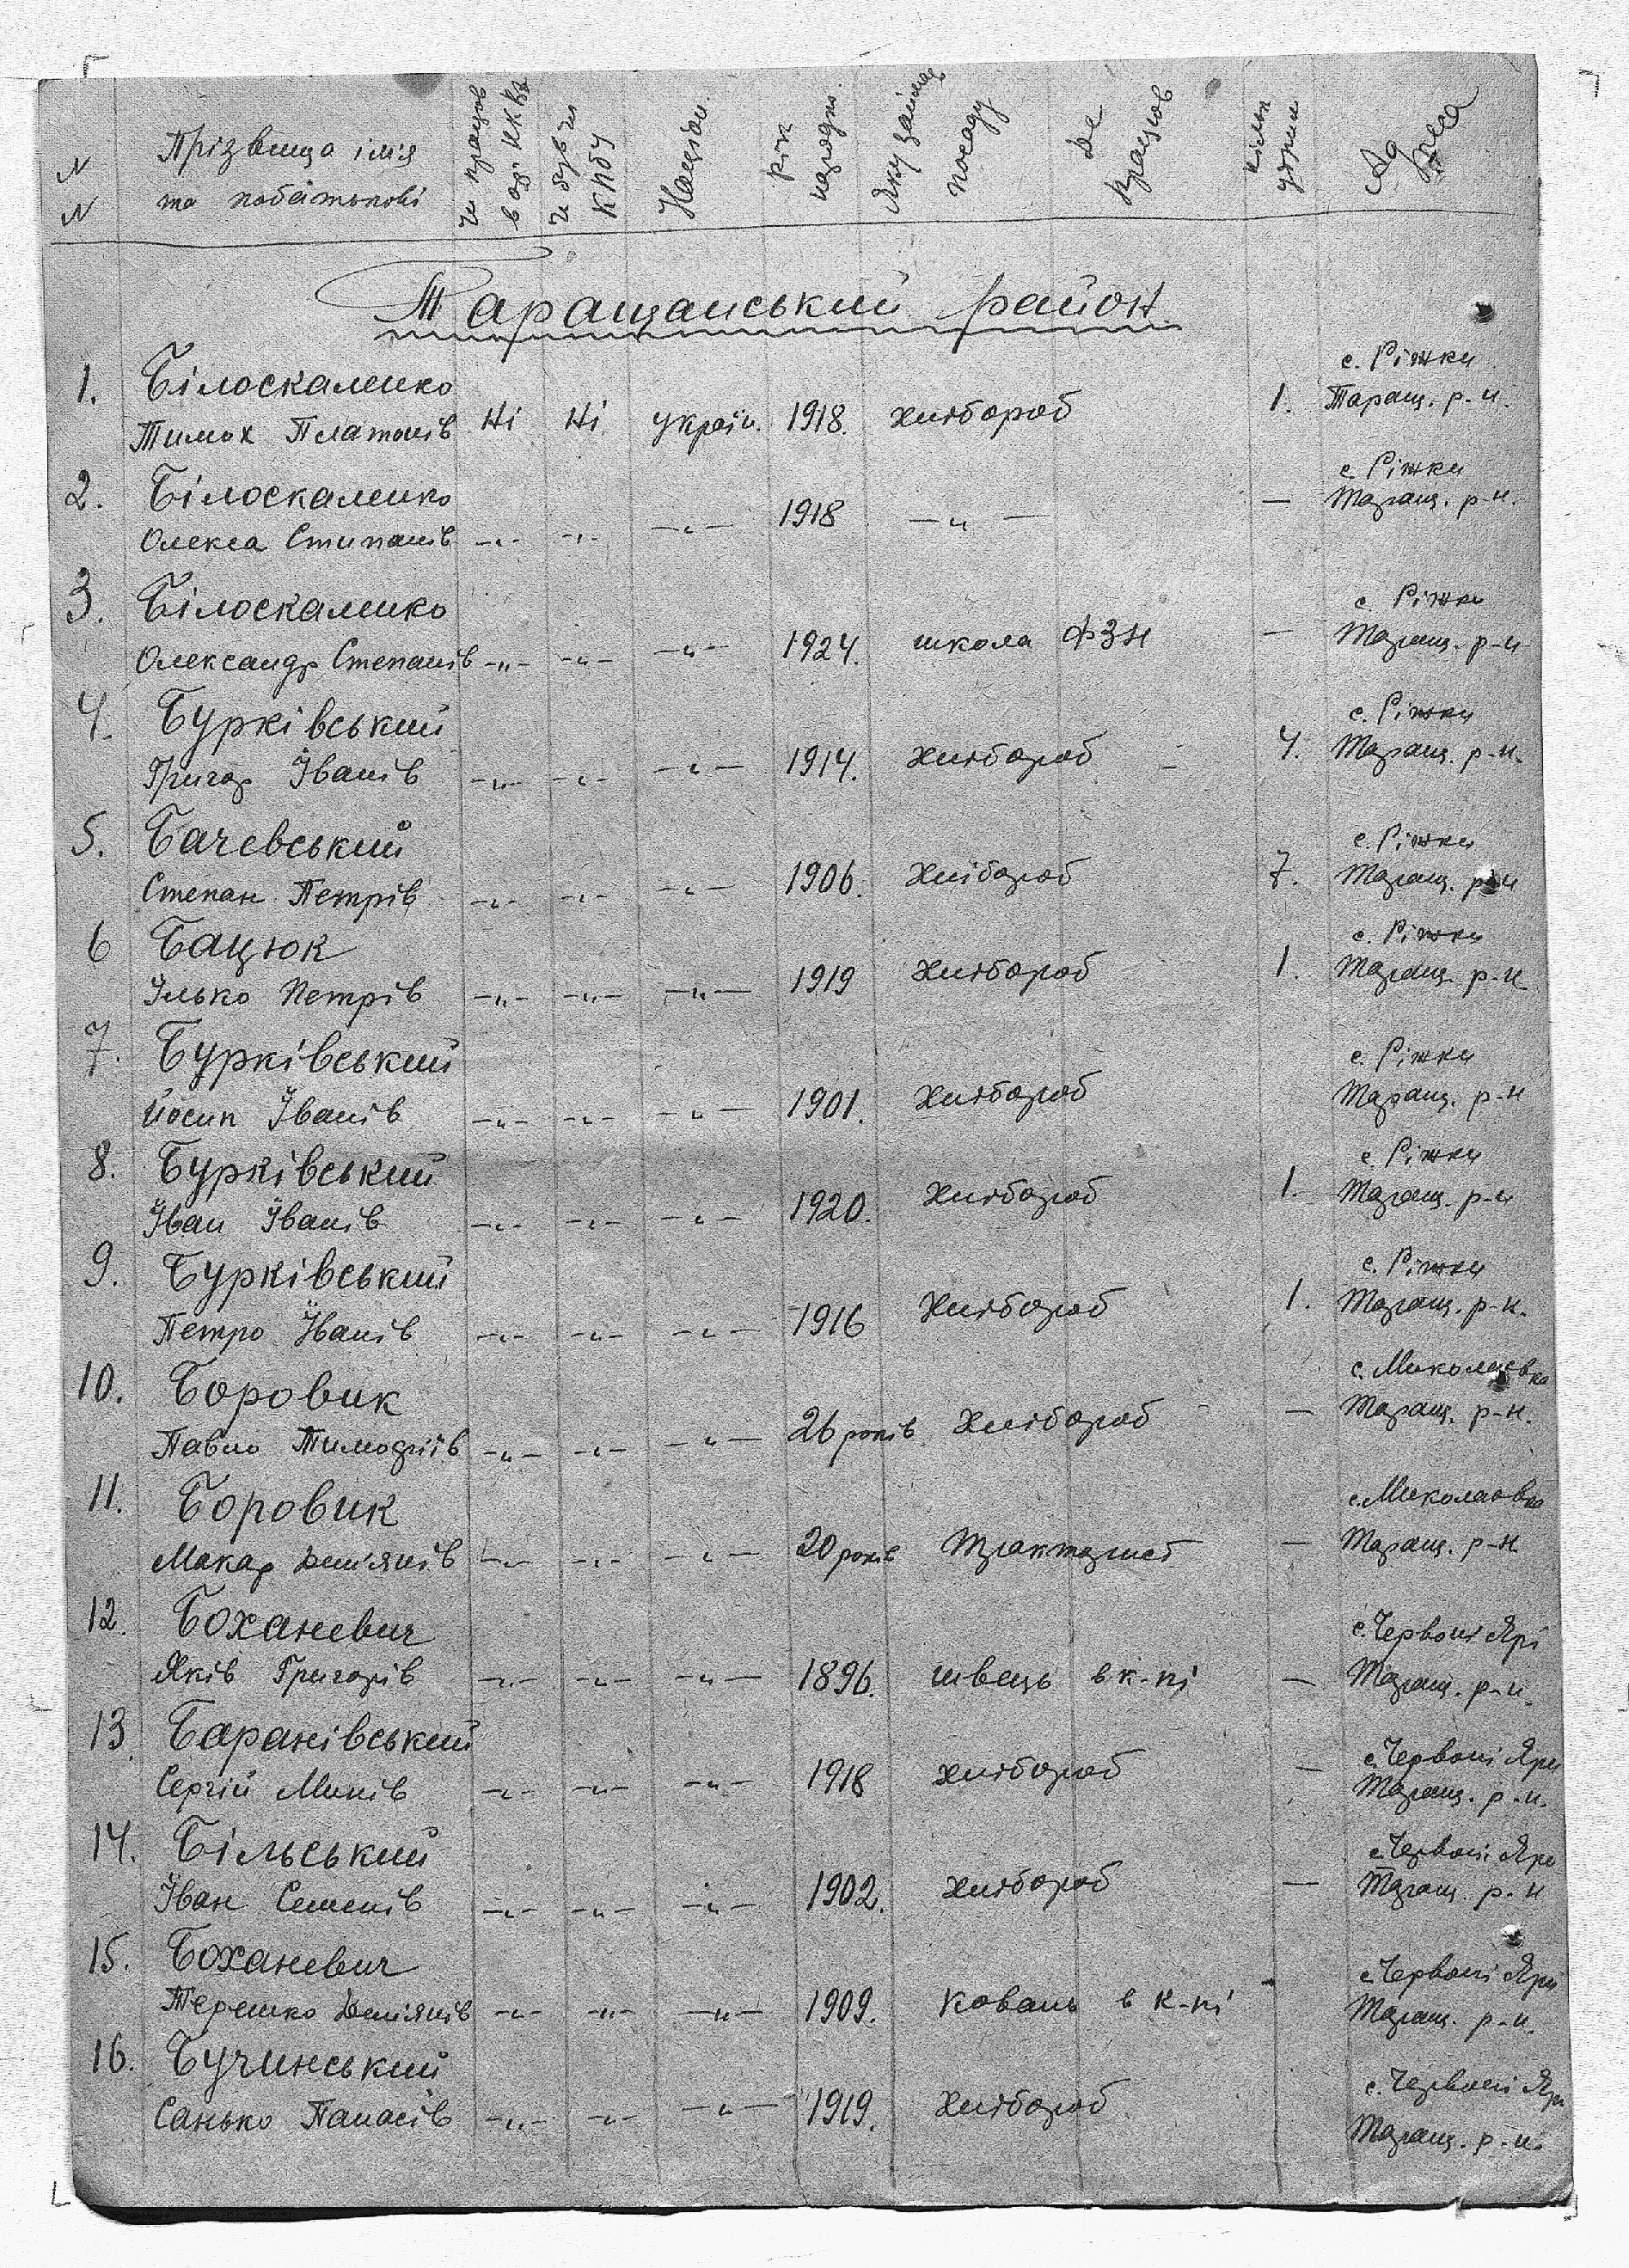 NN Прізвища імя та побатькові чи працюв в орг НКВД чи був чл КПбУ Націон. рік народж. яку займав посаду де працював кільк утрим Адреса
Таращанський район.
1. Білоскаленко с. Ріжки
Тимох Платонів Ні Ні україн. 1918. хлібороб 1. Таращ. р-н.
2. Білоскаленко с. Ріжки
Олекса Степанів -"- -"- -"- 1918 -"- — Таращ. р-н.
3. Білоскаленко с. Ріжки
Олександр Степанів -"- -"- -"- 1924. школа ФЗН — Таращ. р-н
4. Бурківський с. Ріжки
Григор Іванів -"- -"- -"- 1914. хлібороб - 4. Таращ. р-н.
5. Бачевський с. Ріжки
Степан Петрів -"- -"- -"- 1906. хлібороб 7. Таращ. р-н
6 Бацюк с. Ріжки
Ілько Петрів -"- -"- -"- 1919 хлібороб 1. Таращ. р-н.
7. Бурківський с. Ріжки
Йосип Іванів -"- -"- -"- 1901. хлібороб Таращ. р-н
8. Бурківський с. Ріжки
Іван Іванів -"- -"- -"- 1920. хлібороб 1. Таращ. р-н
9. Бурківський с. Ріжки
Петро Іванів -"- -"- -"- 1916 хлібороб 1. Таращ. р-н.
10. Боровик с. Миколаєвка
Павло Тимофіїв -"- -"- -"- 26 років хлібороб — Таращ. р-н.
11. Боровик с. Миколаєвка
Макар Дем'янів -"- -"- -"- 20 років тракторист — Таращ. р-н
12. Боханевич с. Червоні Ярі
Яків Григорів -"- -"- -"- 1896. швець в к-пі — Таращ. р-н.
13. Баранівський с. Червоні Яри
Сергій Минів -"- -"- -"- 1918 хлібороб — Таращ. р-н.
14. Більський с. Червоні Яри
Іван Семенів -"- -"- -"- 1902. хлібороб — Таращ. р-н
15. Боханевич с. Червоні Яри
Терешко Дем'янів -"- -"- -"- 1909. коваль в к-пі Таращ. р-н.
16. Бучинський с. Червоні Яри
Санько Панасів -"- -"- -"- 1919. хлібороб Таращ. р-н.